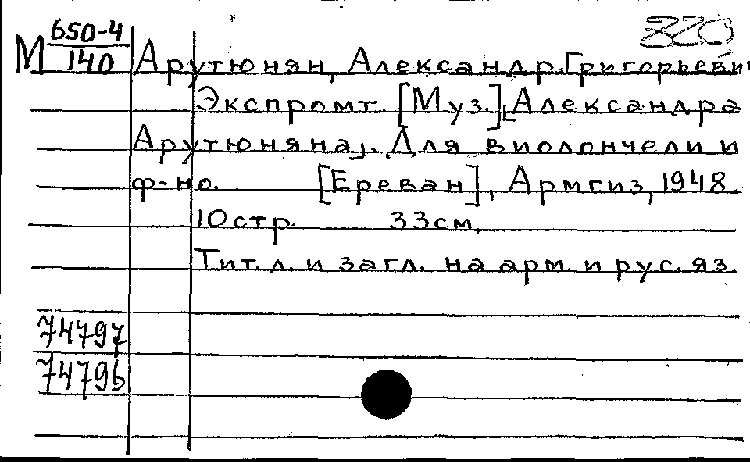 320
М 650-4
140
Арутюнян, Александр Григорьеви
Экспромт. [Муз.] [Александра
Арутюняна]. Для виолончели и
ф-но. [Ереван], Армгиз, 1948.
10 стр. 33 см.
Тит. л. и загл. на арм. и рус. яз.
74797
74796